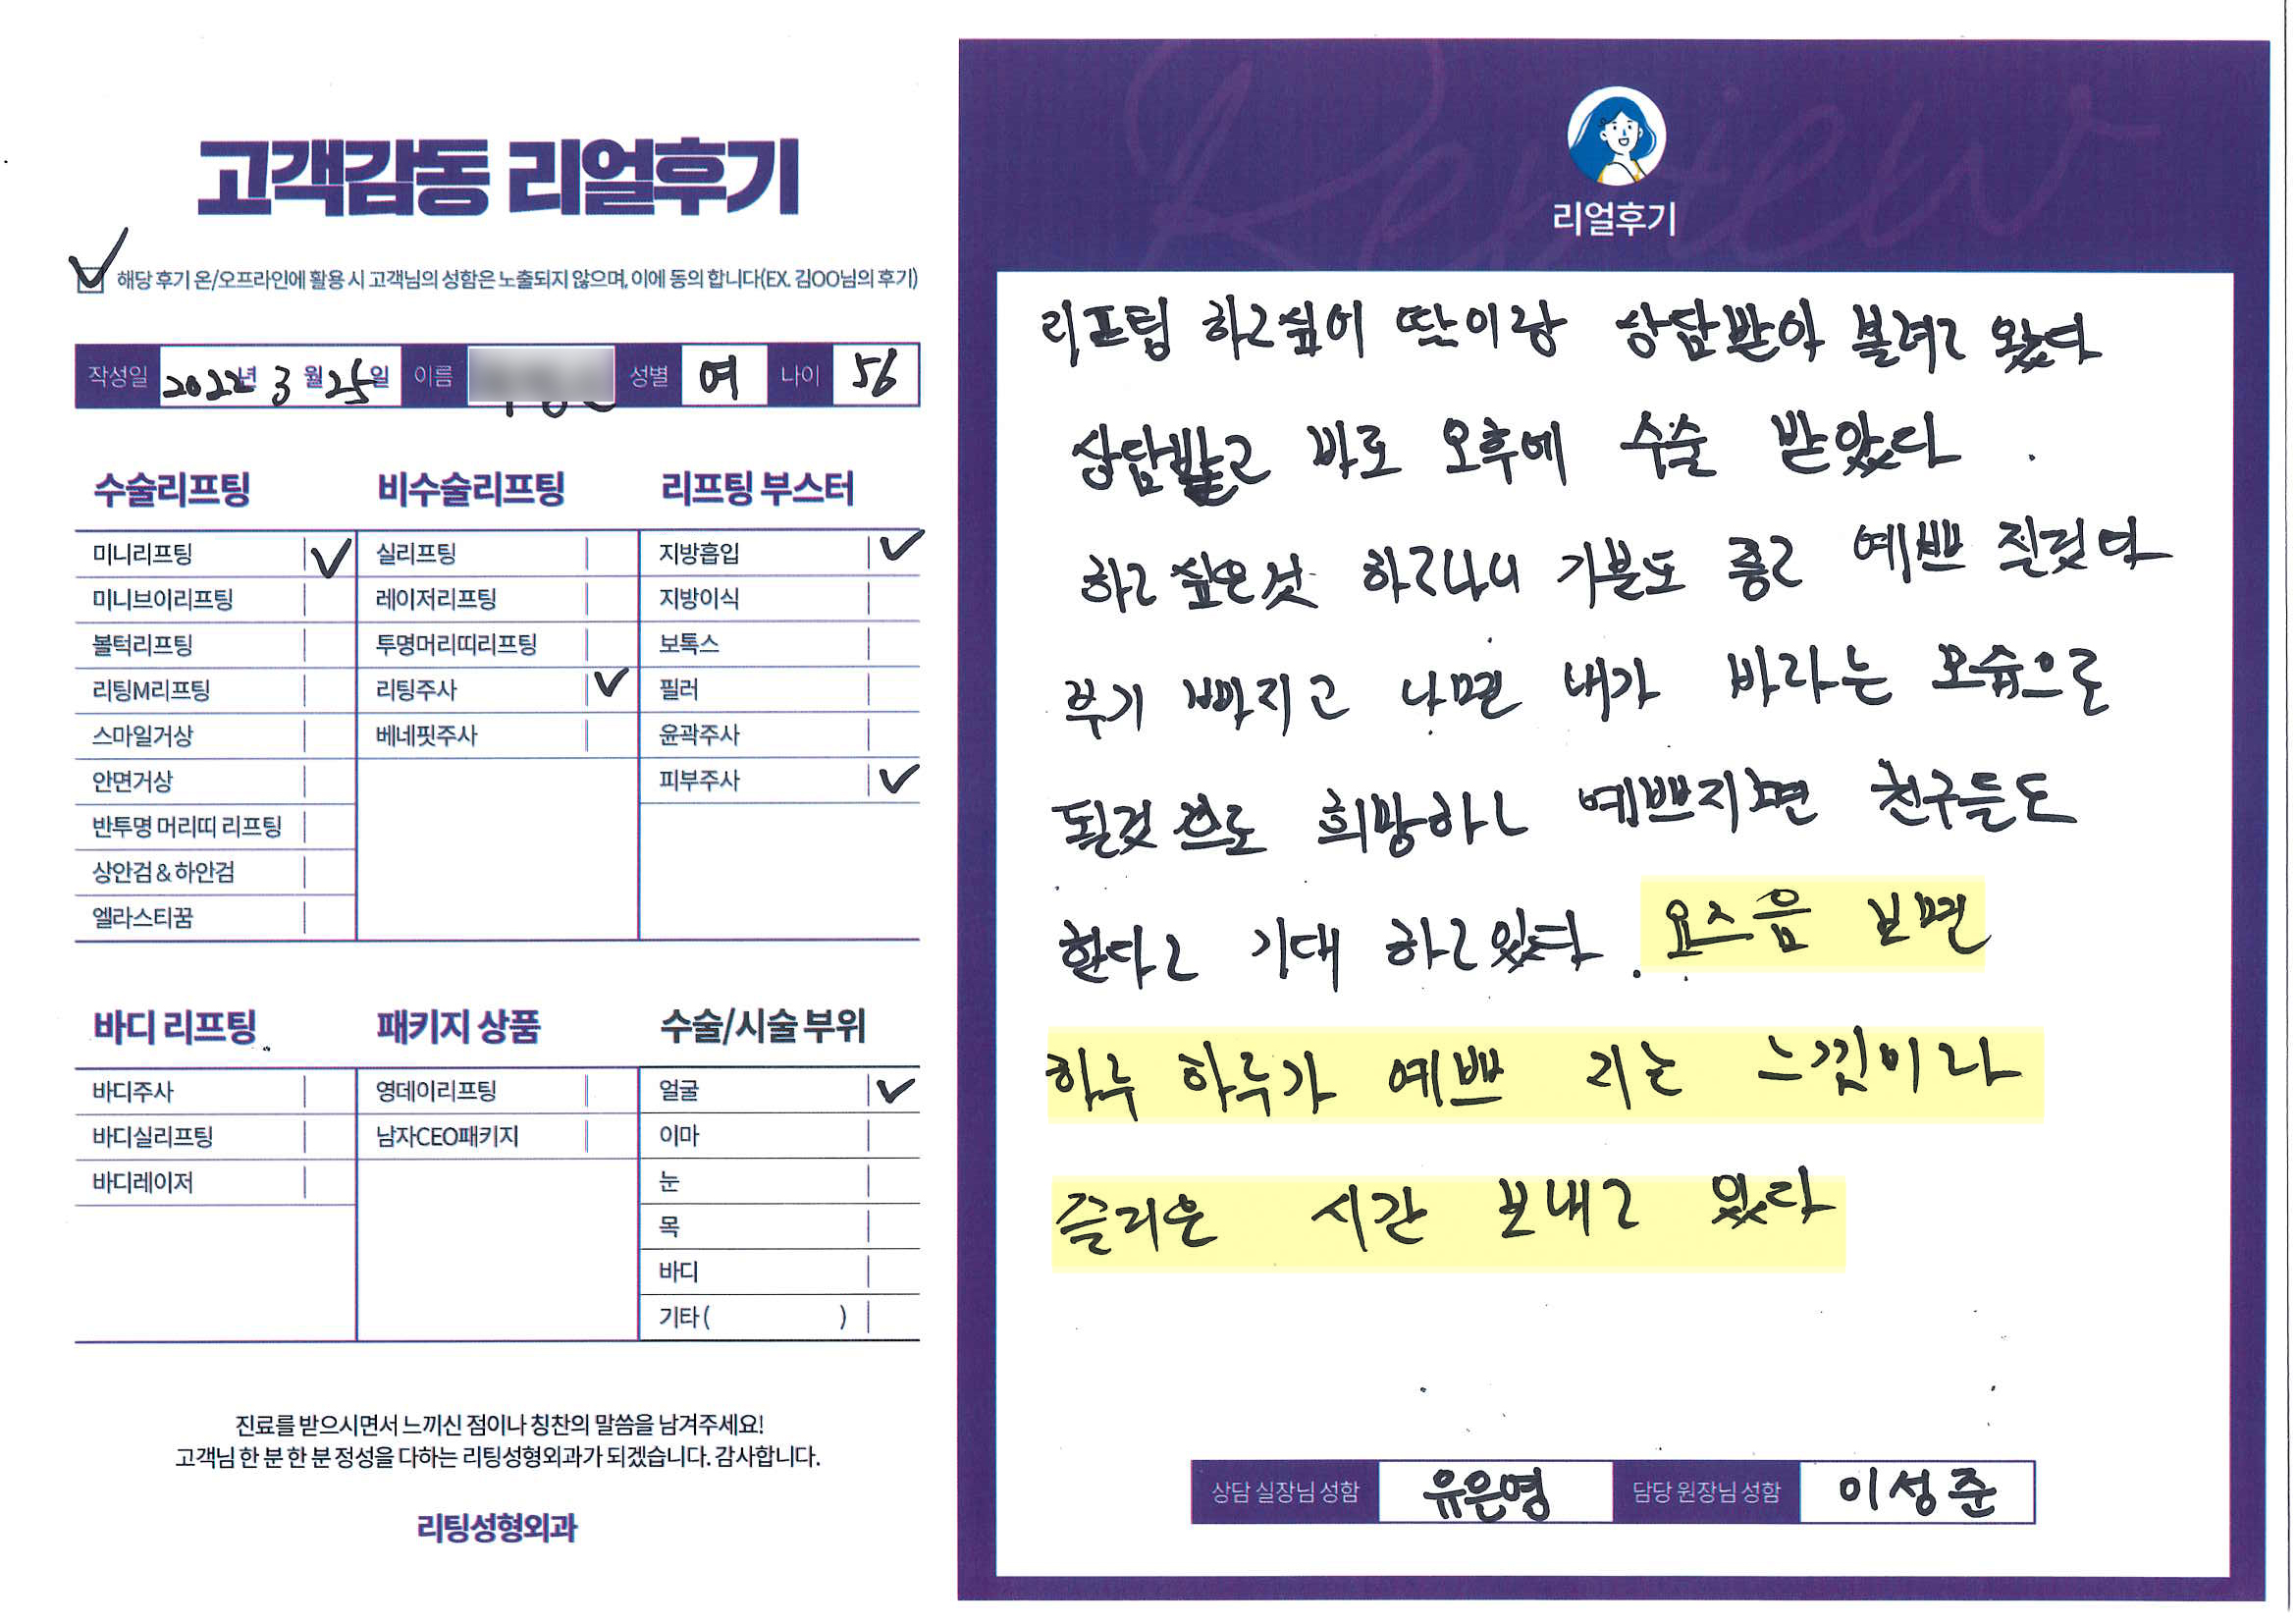 고객감동 리얼후기
해당 후기 온/오프라인에 활용 시 고객님의 성함은 노출되지 않으며, 이에 동의 합니다(EX. 김OO님의 후기)
작성일 2022년 3월 25일 이름 성별 여 나이 56
수술리프팅
미니리프팅
미니브이리프팅
볼턱리프팅
리팅M리프팅
스마일거상
안면거상
반투명 머리띠 리프팅
상안검 & 하안검
엘라스티꿈
비수술리프팅
실리프팅
레이저리프팅
투명머리띠리프팅
리팅주사
베네핏주사
리프팅 부스터
지방흡입
지방이식
보톡스
필러
윤곽주사
피부주사
바디 리프팅
바디주사
바디실리프팅
바디레이저
패키지 상품
영데이리프팅
남자CEO패키지
수술/시술 부위
얼굴
이마
눈
목
바디
기타 ( )
진료를 받으시면서 느끼신 점이나 칭찬의 말씀을 남겨주세요!
고객님 한 분 한 분 정성을 다하는 리팅성형외과가 되겠습니다. 감사합니다.
리팅성형외과
Review
리얼후기
리프팅 하고싶어 딸이랑 상담받아 볼려고 왔다
상담받고 바로 오후에 수술 받았다.
하고 싶은것 하고나니 기분도 좋고 예쁘 질것다
부기 빠지고 나면 내가 바라는 모습으로
될것 으로 희망하고 예쁘지면 친구들도
한다고 기대 하고있다. 요즈음 보면
하루 하루가 예쁘 지는 느낌이라
즐거운 시간 보내고 있다
상담 실장님 성함 유은영 담당 원장님 성함 이성준